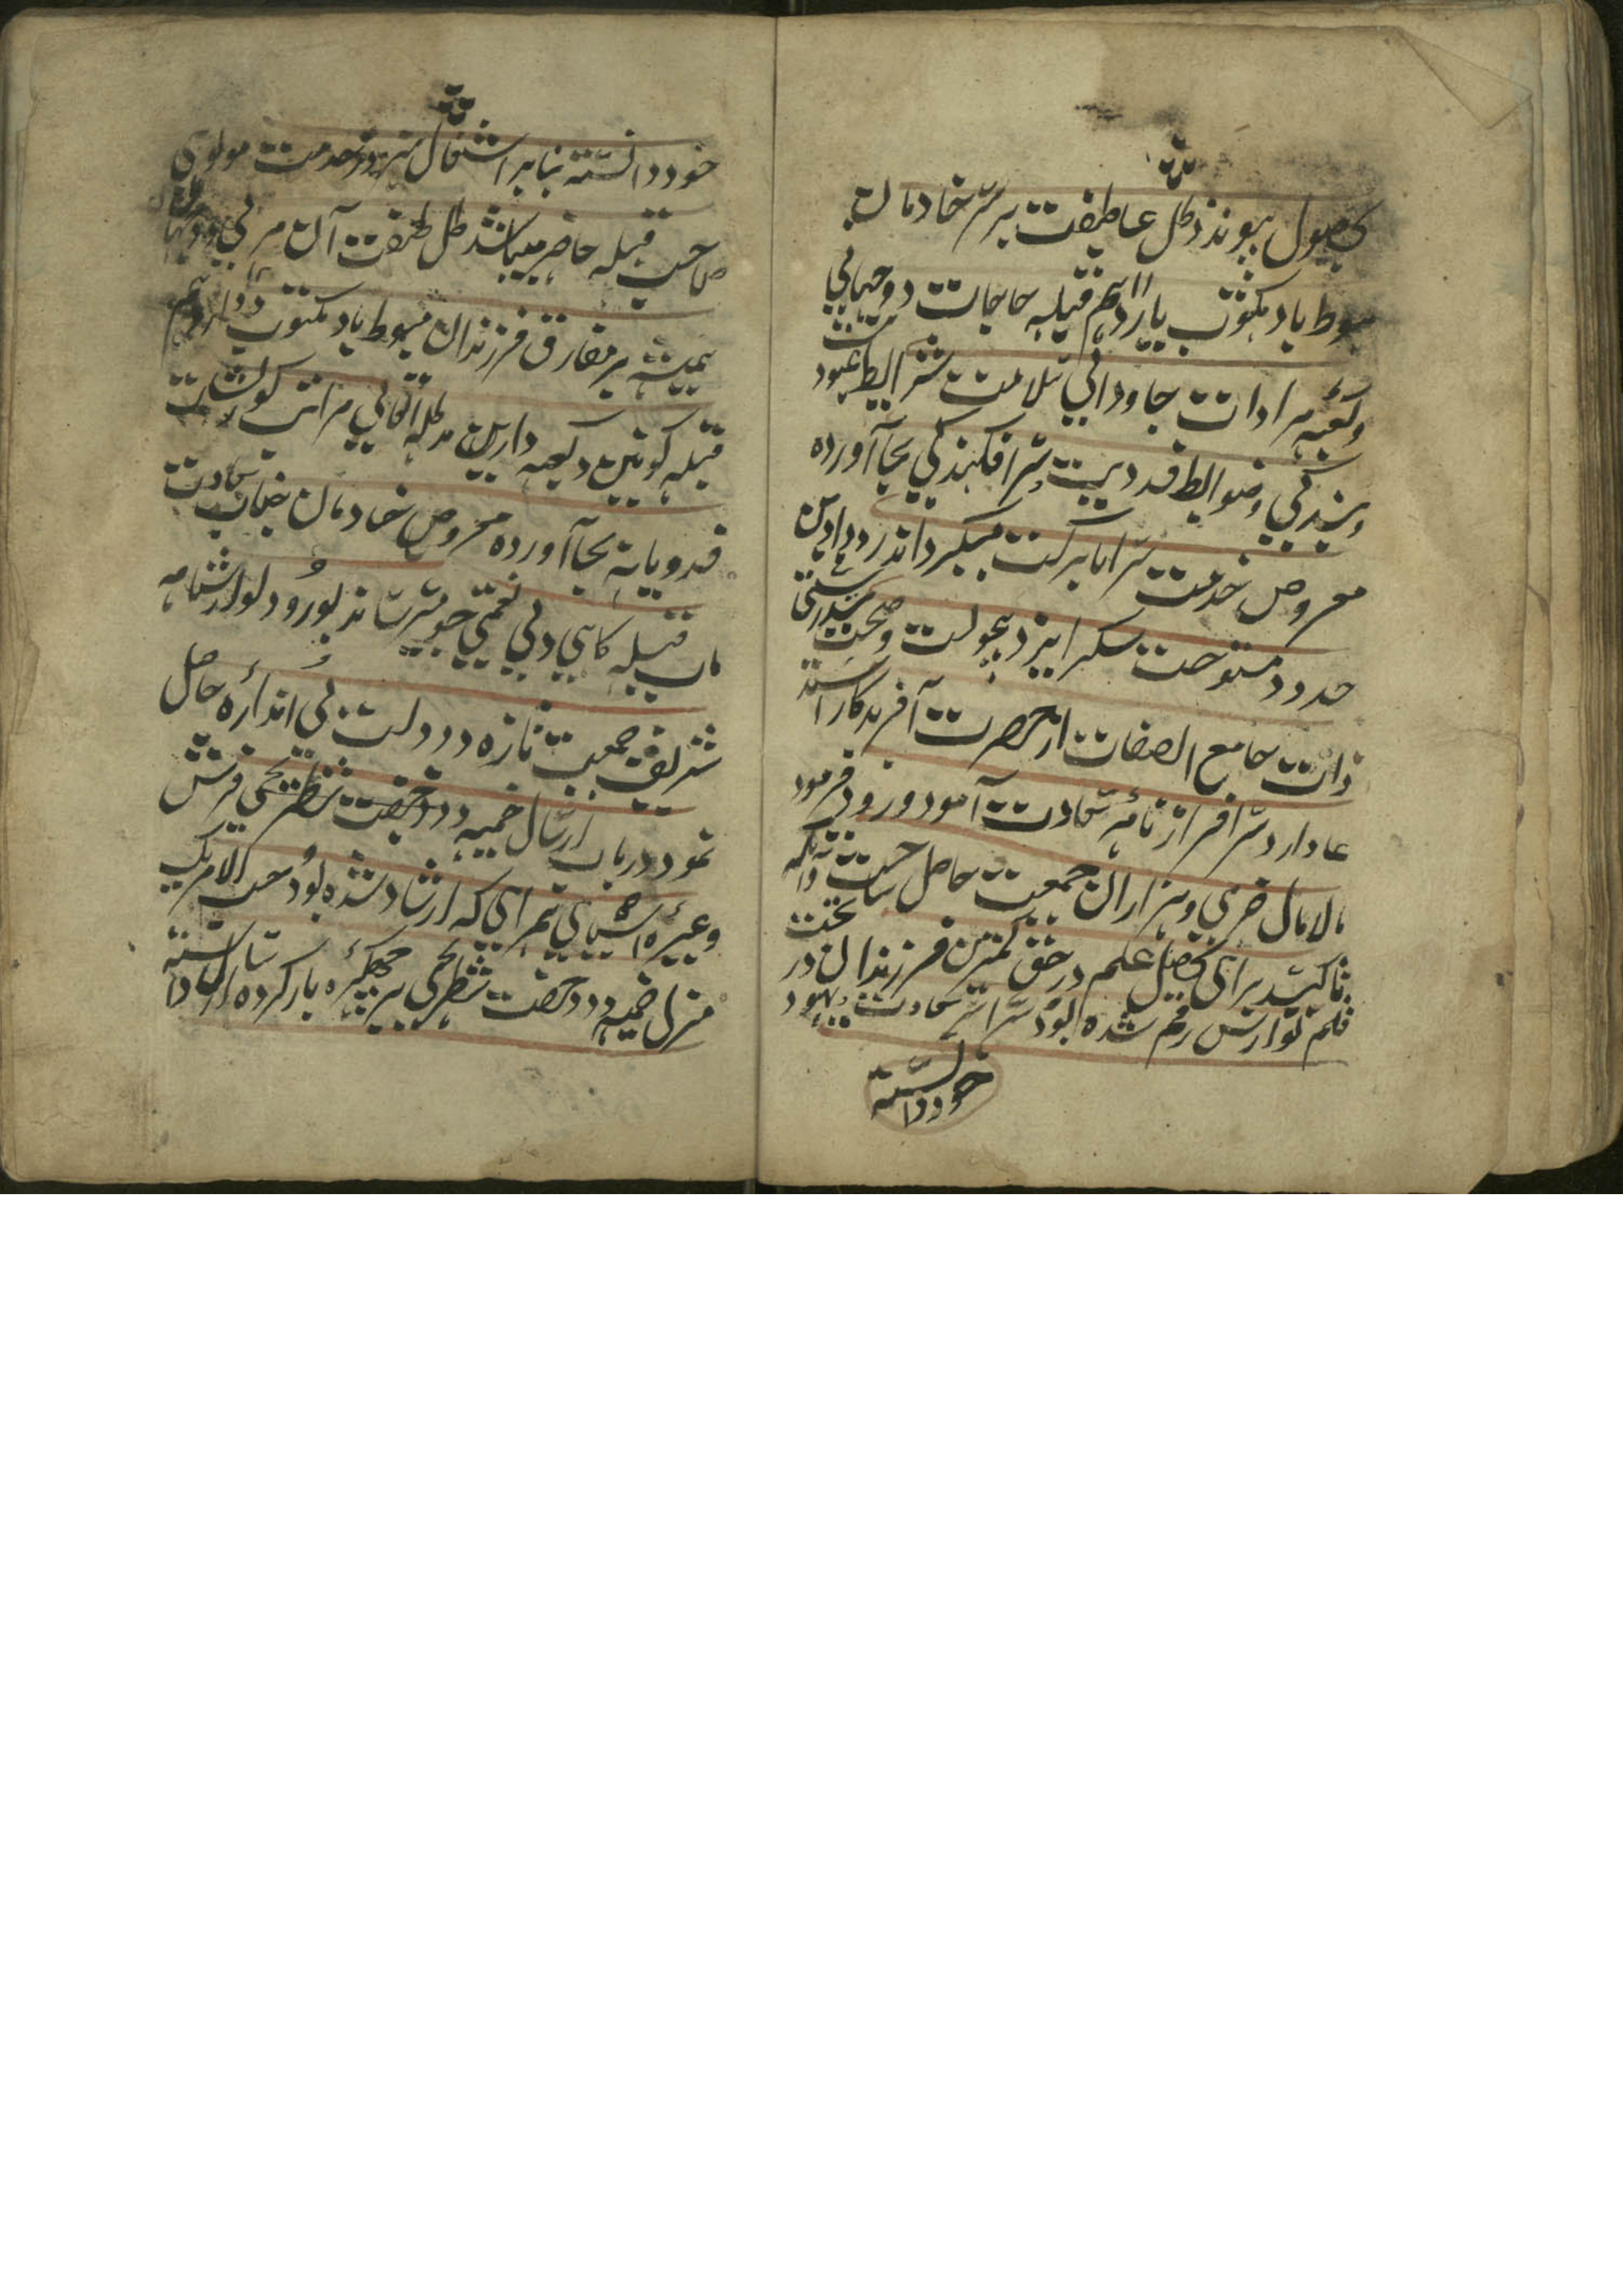 بحصول پیوندد ظل عاطفت بر سر خادمان
مبسوط باد مکتوب یازدهم قبله حاجات دو جهانی
و کعبه مرادات جاودانی سلامت شرایط عبودیت
و بندگی و ضوابط فدویت و سرافکندگی بجا آورده
معروض خدمت سراپا برکت میگرداند
حدود مستوجب شکر ایزد بیچونست و صحت و سلامتی
ذات جامع الصفات از حضرت آفریدگار استد
عا دارد سرافراز نامه سعادت آمود ورود فرمود
مالامال خرمی و هزاران جمعیت حاصل ساخت و آنکه
تاکید برای تحصیل علم در حق کمترین فرزندان در تحت
قلم نوازش رقم شده بود سراسر سعادت بهبود
خود دانسته
خود دانسته بنا بر اشتغال هر روز بخدمت مولوی
صاحب قبله حاضر میباشد ظل عطوفت آن مربی
همیشه بر مفارق فرزندان مبسوط باد مکتوب دوازدهم
قبله کونین و کعبه دارین مدظله العالی مراتب کورنشات
فدویانه بجا آورده معروض خادمان جناب سعادت
مآب قبله گاهی ولی نعمتی جیو میرساند بورود نوازشنامه
شریف جمعیت تازه و دولت بی اندازه حاصل
نمود در باب ارسال خیمه و دو جفت شطرنجی فرش
وغیره اشیای همراهی که ارشاد شده بود حسب الامر یک
منزل خیمه و دو جفت شطرنجی بر چهکره بار کرده ارسال داشته